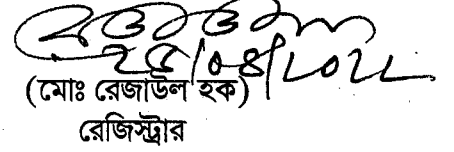 ২৫/০৪/২০২২
(মোঃ রেজাউল হক)
রেজিস্ট্রার